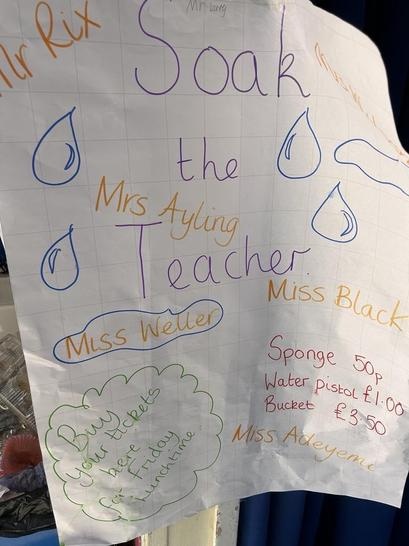 Mr Rix
Soak
the
Mrs Ayling
Teacher
Miss Black
Miss Weller
Sponge 50p
Water pistol £1.00
Bucket £3.50
Miss Adeyemi
Buy
your tickets
here
for Friday
lunchtime